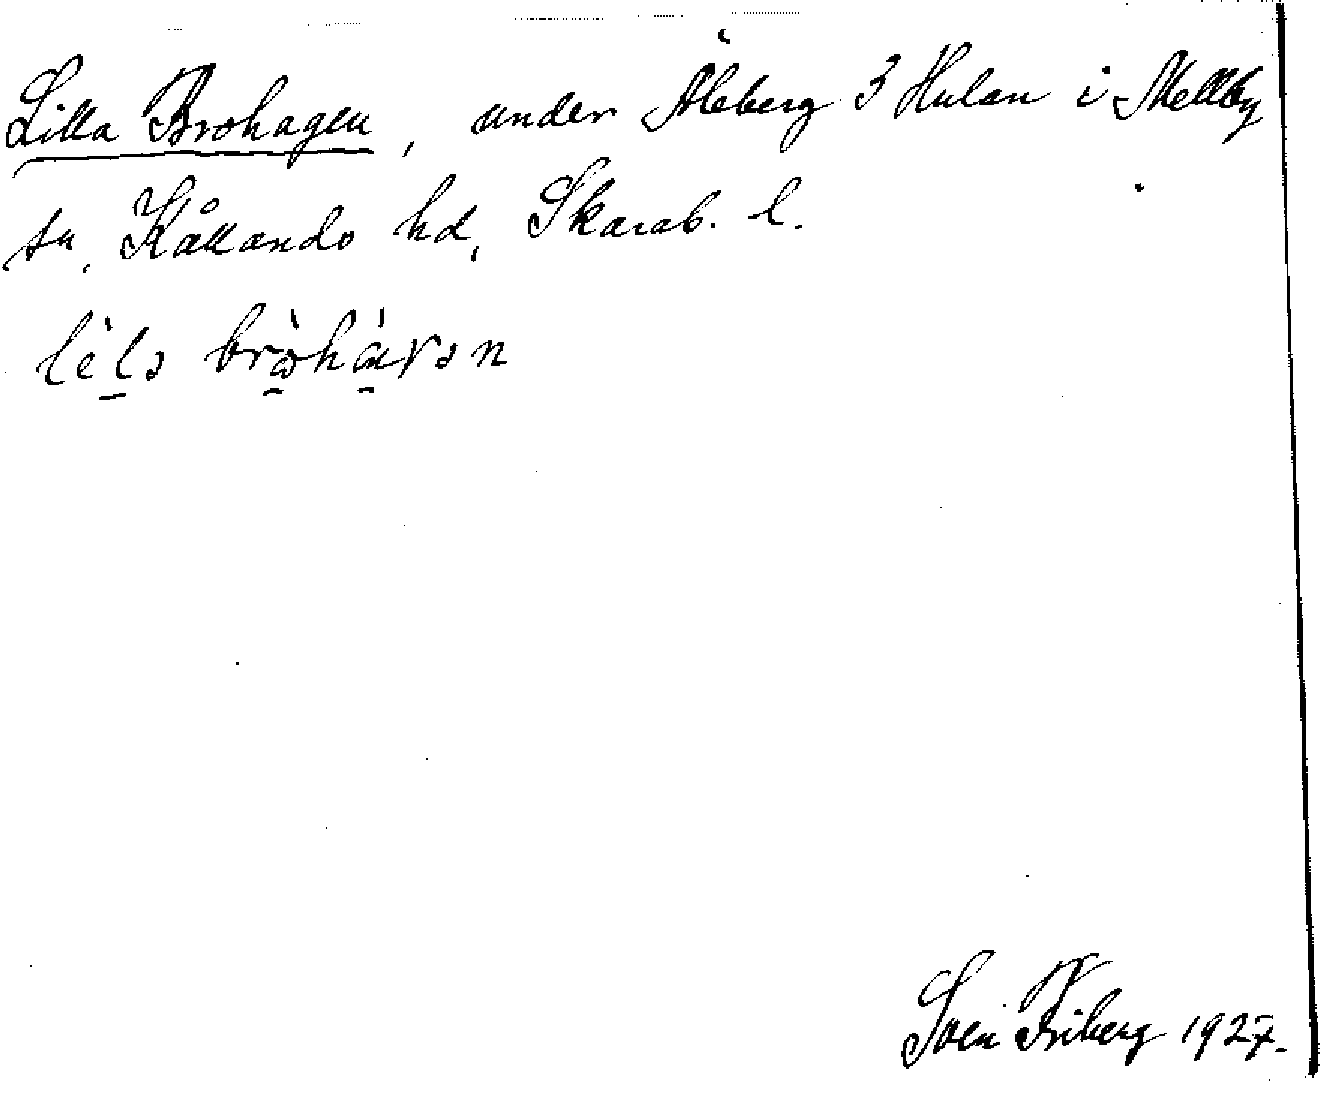 Lilla Brohagen, under Åleberg 3 Hulan i Mellby
sn, Kållands hd, Skarab. l.
lèlə bròhàγən
Sven Friberg 1927.